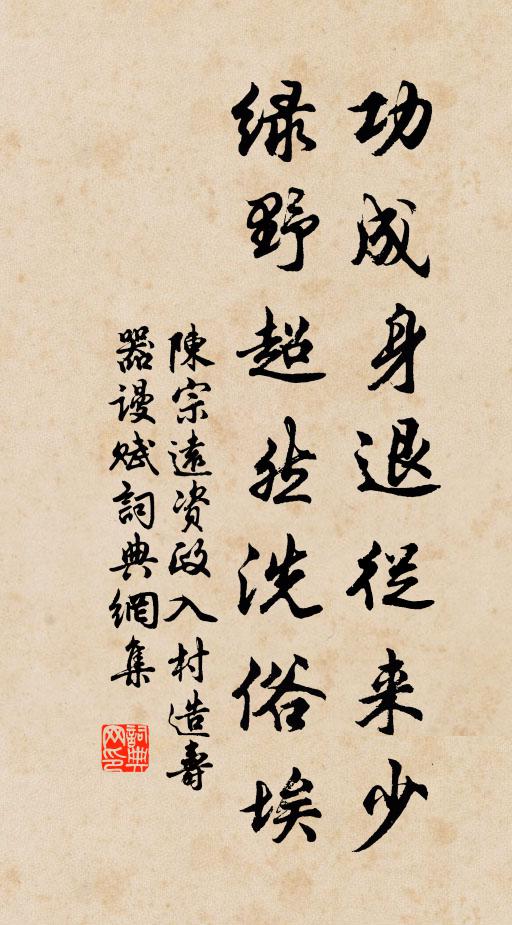 功成身退從来少
緑野超然洗俗埃
陳宗遠資政入村造壽
器謾赋詞典網集
詞典網印